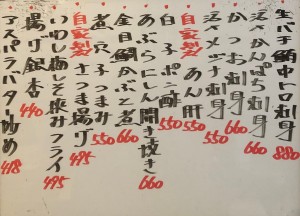 生バチ鮪中トロ刺身 880
活〆かんぱち刺身 660
かつお刺身 660
刺身 550
自家製 あん肝 550
白子ポン酢 550
あぶらにしん開き焼き 660
金目鯛かぶと煮 660
煮穴子つまみ 550
自家製 さつま揚げ 495
いわし梅しそ挟みフライ 495
揚げ銀杏 440
アスパラバター炒め 418